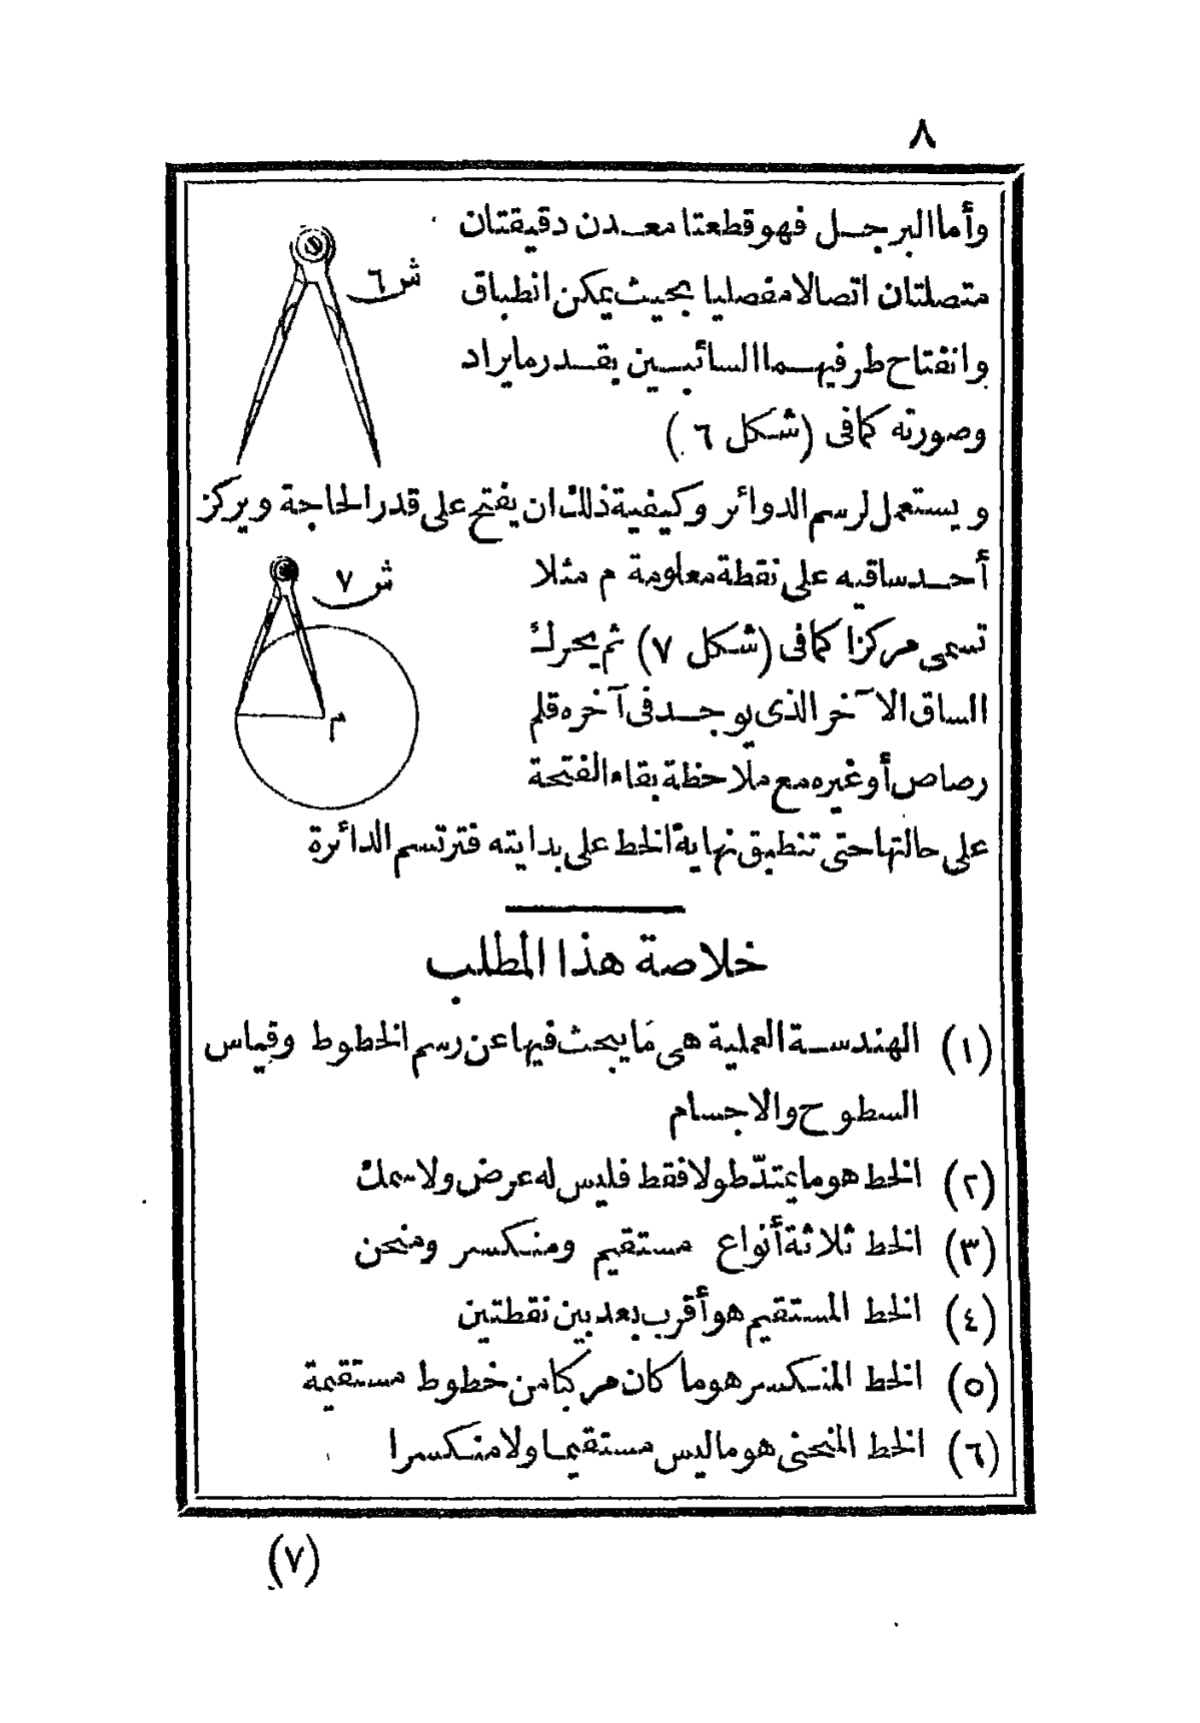 ٨
وأما البرجل فهو قطعتا معدن دقيقتان
متصلتان اتصالا مفصليا بحيث يمكن انطباق
وانفتاح طرفيهما السائبين بقدر ما يراد
وصورته كما فى (شكل ٦)
ش ٦
ويستعمل لرسم الدوائر وكيفية ذلك ان يفتح على قدر الحاجة ويركز
أحد ساقيه على نقطة معلومة م مثلا
تسمى مركزا كما فى (شكل ٧) ثم يحرك
الساق الآخر الذى يوجد فى آخره قلم
رصاص أو غيره مع ملاحظة بقاء الفتحة
ش ٧
م
على حالتها حتى تنطبق نهاية الخط على بدايته فترتسم الدائرة
خلاصة هذا المطلب
(١) الهندسة العملية هى ما يبحث فيها عن رسم الخطوط وقياس
السطوح والاجسام
(٢) الخط هو ما يمتدّ طولا فقط فليس له عرض ولا سمك
(٣) الخط ثلاثة أنواع مستقيم ومنكسر ومنحن
(٤) الخط المستقيم هو أقرب بعد بين نقطتين
(٥) الخط المنكسر هو ما كان مركبا من خطوط مستقيمة
(٦) الخط المنحنى هو ما ليس مستقيما ولا منكسرا
(٧)